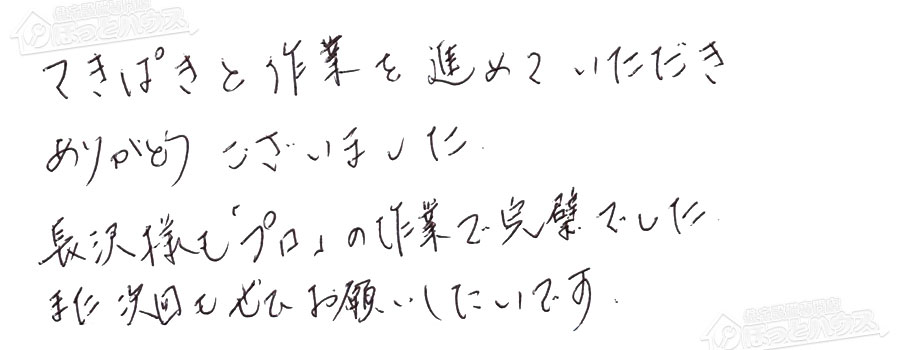 てきぱきと作業を進めていただき
ありがとうございました.
長沢様も「プロ」の作業で完璧でした.
また次回もぜひお願いしたいです.
ほっとハウス
ほっとハウス